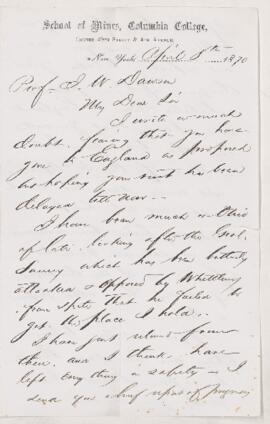 School of Mines, Columbia College,
Corner 49th Street & 4th Avenue,
New York April 8th 1870
Prof. J. W. Dawson
My Dear Sir
I write in much
doubt, fearing that you have
gone to England as proposed
but hoping you have been
delayed till now.
I have been much in Ohio
of late looking after the Geol.
Survey which has been bitterly
attacked & opposed by Whittlesey
from spite that he failed to
get the place I hold.
I have just returned from
there and I think have
left everything in safety. I
send you a brief report of progress